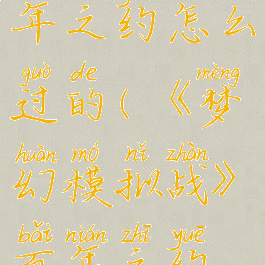 年之约怎么
guò de mèng
过的(《梦
huàn mó nǐ zhàn
幻模拟战》
bǎi nián zhī yuē
百年之约